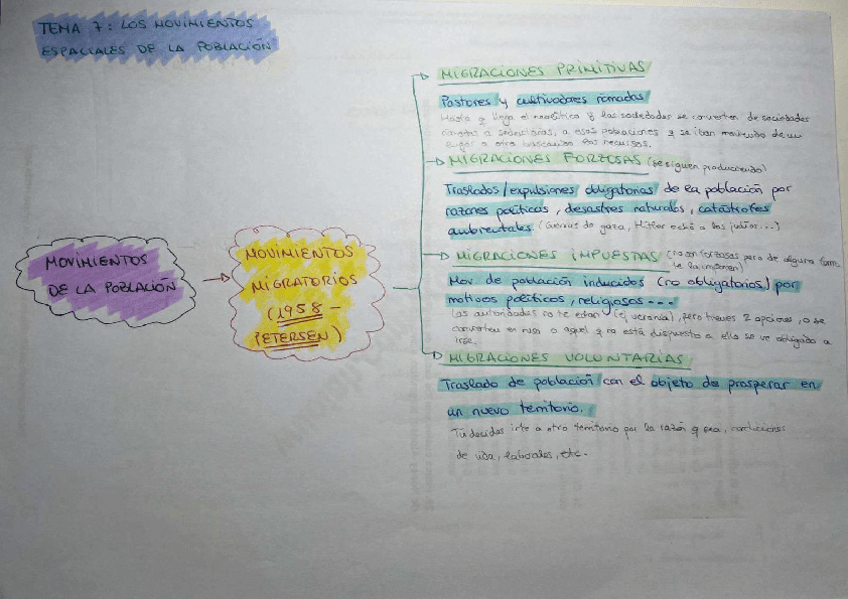 TEMA 7: LOS MOVIMIENTOS
ESPACIALES DE LA POBLACIÓN
MOVIMIENTOS
DE LA POBLACIÓN
MOVIMIENTOS
MIGRATORIOS
(1958 -
PETERSEN)
MIGRACIONES PRIMITIVAS
Pastores y cultivadores nómadas
Hasta q llega el neolítico y las sociedades se convierten de sociedades
a sedentarias, a esas poblaciones q se iban moviendo de un
lugar a otro buscando los recursos.
MIGRACIONES FORZOSAS (se siguen produciendo)
Traslados/expulsiones obligatorias de la población por
razones políticas, desastres naturales, catástrofes
ambientales. (Guerras de gaza, Hitler echó a los judíos...)
MIGRACIONES IMPUESTAS (no son forzosas pero de alguna form
se la imponen)
Mov de población inducidos (no obligatorios) por
motivos políticos, religiosos...
Las autoridades no te echan (ej ucrania), pero tienes 2 opciones, o se
convierten en rusos o aquel q no está dispuesto a ello se ve obligado a
irse.
MIGRACIONES VOLUNTARIAS
Traslado de población con el objeto de prosperar en
un nuevo territorio.
Tú decides irte a otro territorio por la razón q sea, condiciones
de vida, laborales, etc.